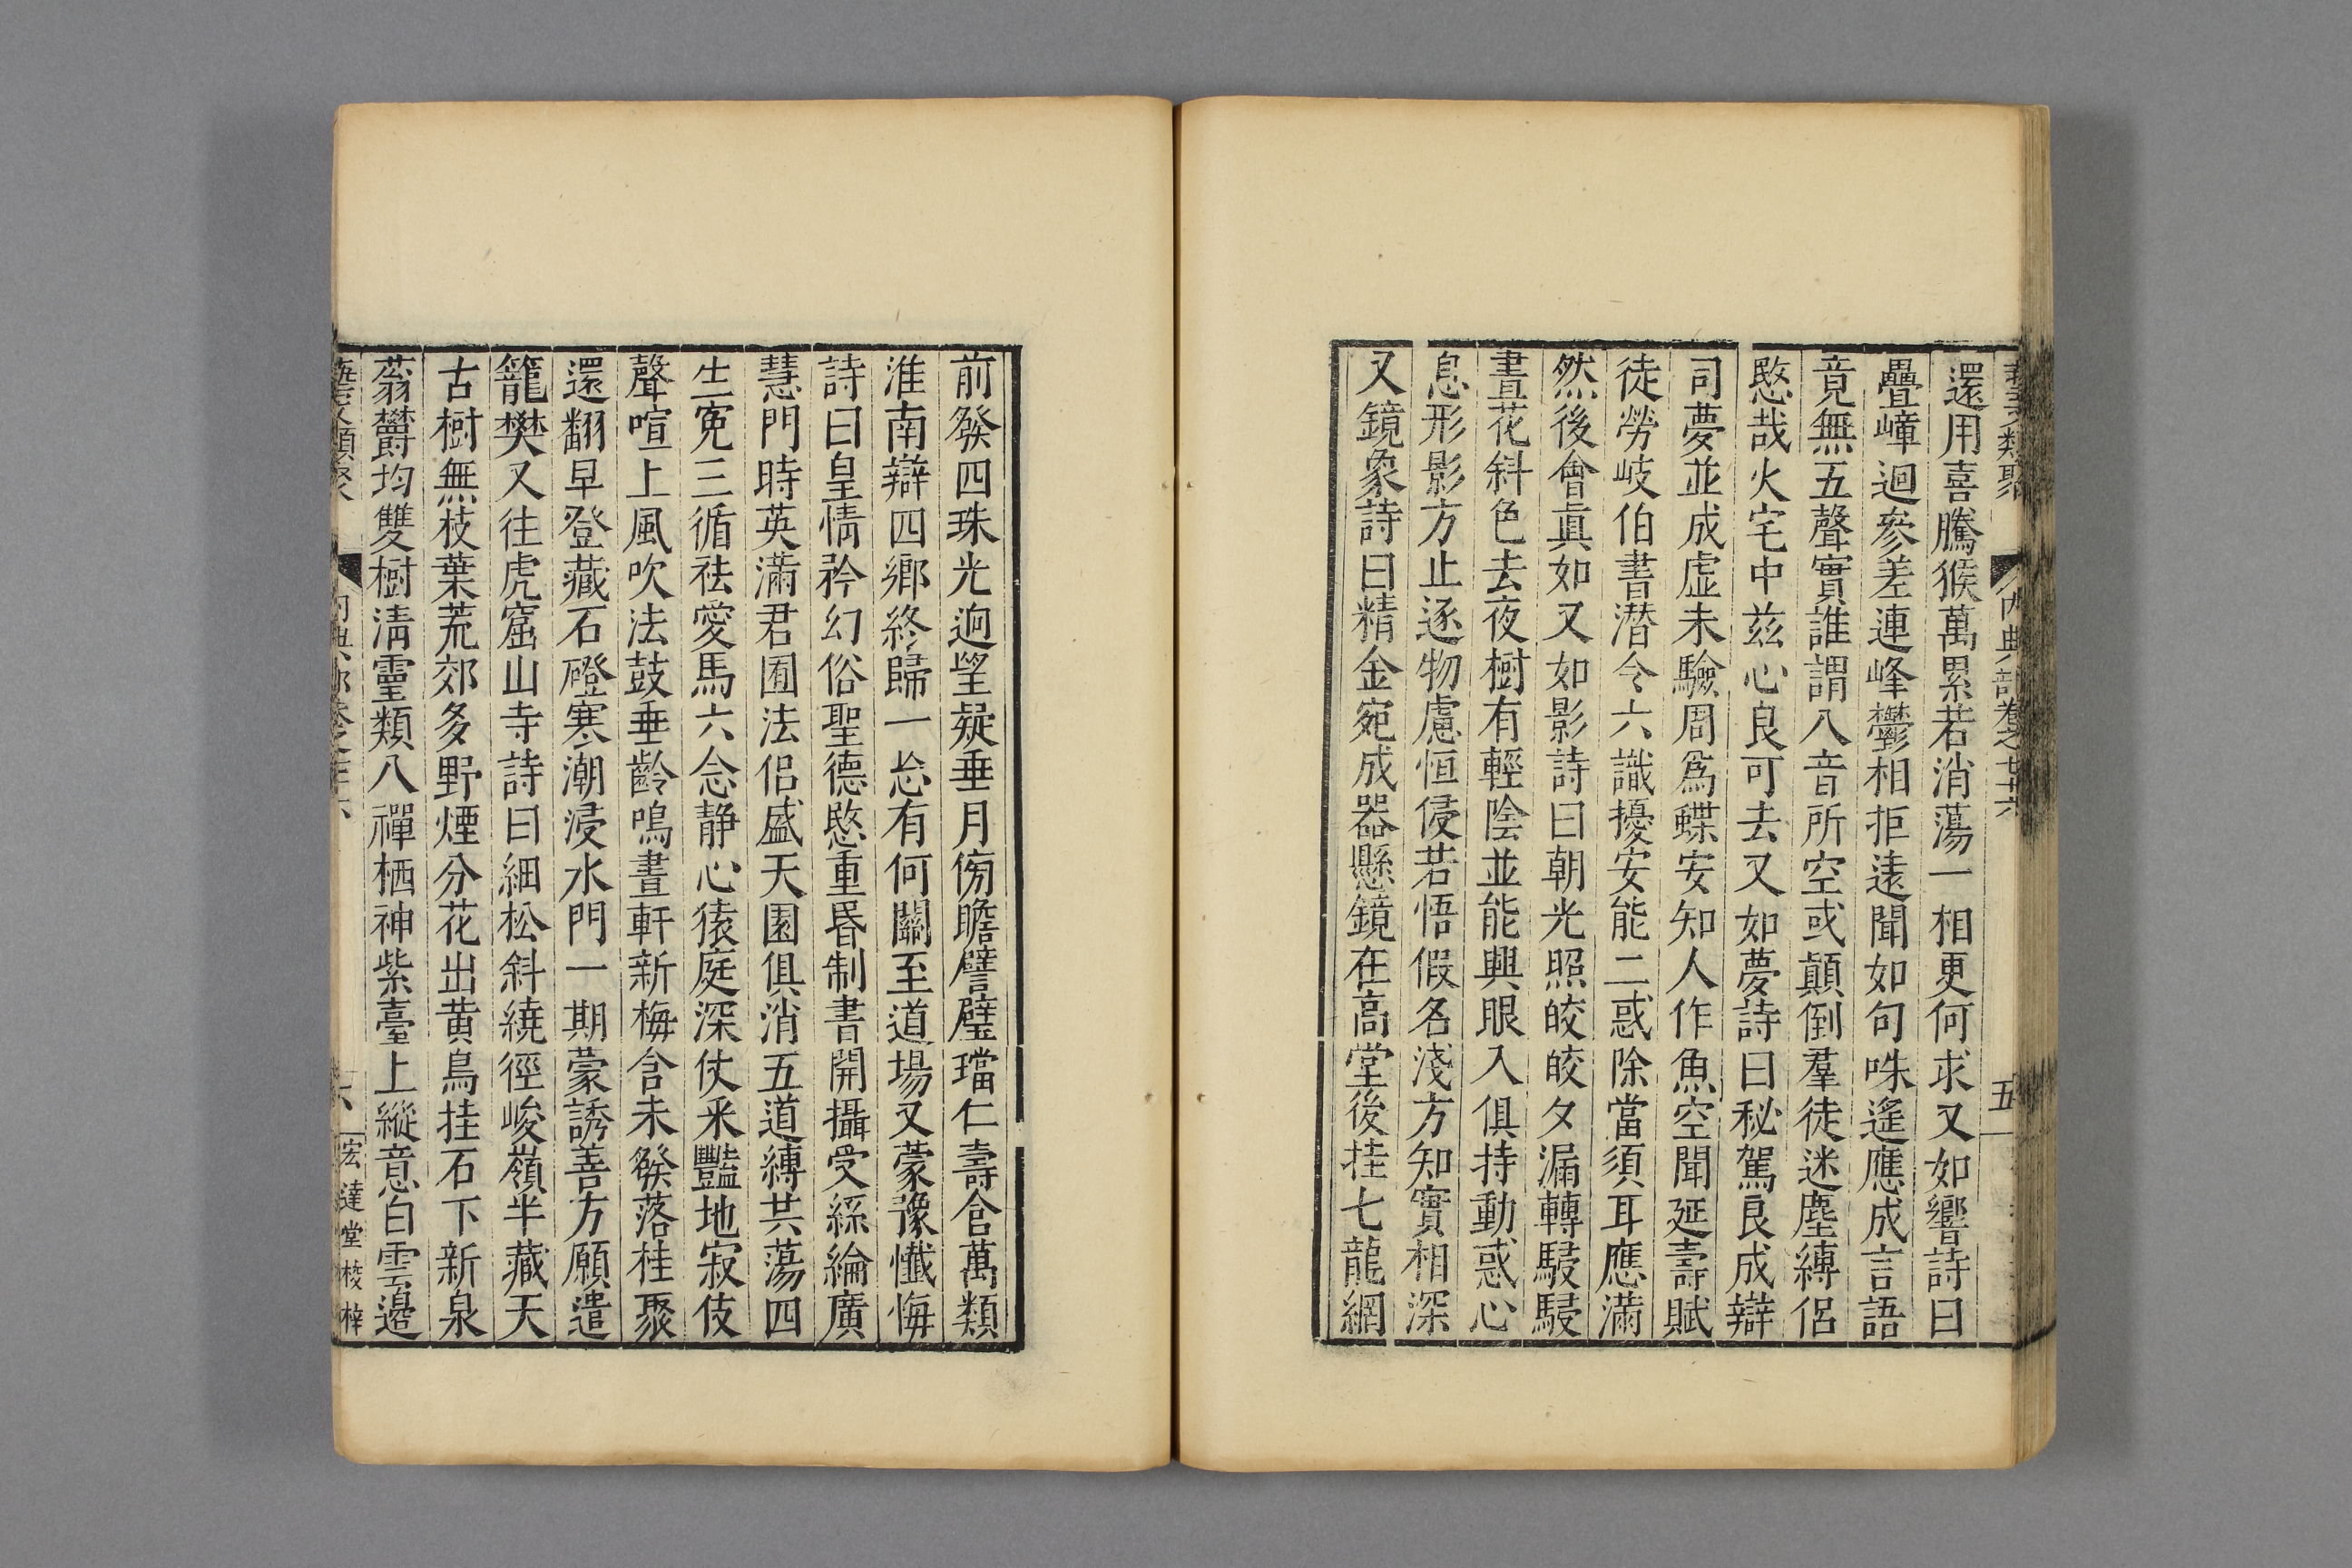 藝文類聚 內典部卷之七十六 五
還用喜騰猴萬累若消蕩一相更何求又如響詩曰
疊嶂迴參差連峰鬱相拒遠聞如句咮遙應成言語
竟無五聲實誰謂八音所空或顛倒羣徒迷塵縛侶
愍哉火宅中兹心良可去又如夢詩曰秘駕良成辯
司夢並成虛未驗周爲蝶安知人作魚空聞延壽賦
徒勞岐伯書潜令六識擾安能二惑除當須耳應滿
然後會眞如又如影詩曰朝光照皎皎夕漏轉駸駸
晝花斜色去夜樹有輕陰並能興眼入俱持動惑心
息形影方止逐物慮恒侵若悟假名淺方知實相深
又鏡象詩曰精金宛成器懸鏡在高堂後挂七龍網
前發四珠光逈望疑垂月傍瞻譬璧璫仁壽含萬類
淮南辯四鄉終歸一忩有何關至道場又蒙豫懺悔
詩曰皇情矜幻俗聖德愍重昏制書開攝受絲綸廣
慧門時英滿君囿法侶盛天園俱消五道縛共蕩四
生寃三循祛愛馬六念静心猿庭深仗釆豔地寂伎
聲喧上風吹法鼓垂齡鳴晝軒新梅含未發落桂聚
還翻早登藏石磴寒潮浸水門一期蒙誘善方願遣
籠樊又往虎窟山寺詩曰細松斜繞徑峻嶺半藏天
古樹無枝葉荒郊多野煙分花出黄鳥挂石下新泉
蓊欝均雙樹淸靈類八禪栖神紫臺上縱意白雲邊
藝文類聚 內典部卷之七十六 六 宏達堂校梓